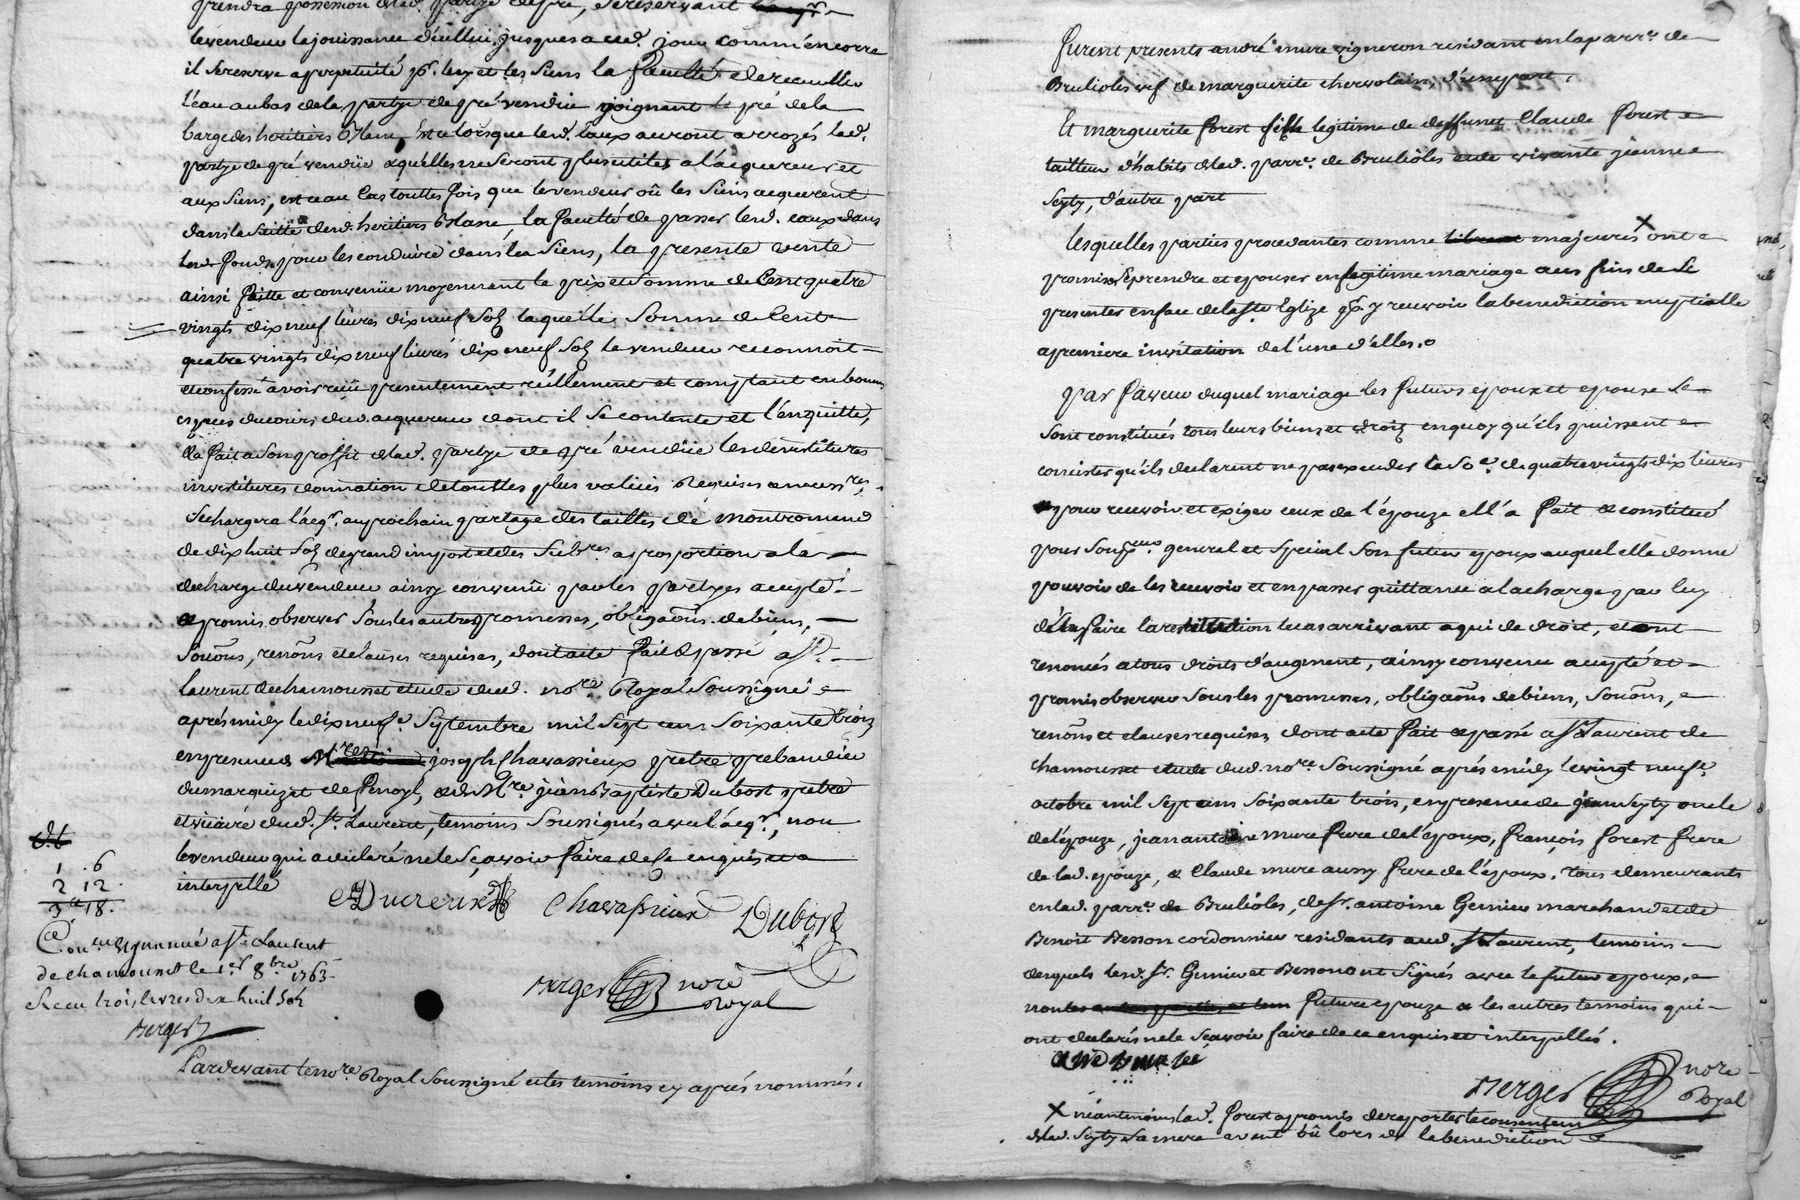 prendra possession de lad. partye de pré, se reservant
le vendeur la jouissance d'icelluy jusques a ced. jour comm'encorre
il se reserve a perpetuité pr. luy et les siens la faculté de recueillir
l'eau au bas de la partye de pré vendüe joignant le pré de la
barge des heritiers Blanc, et ce lorsque lesd. eaux auront arrozés lad.
partye de pré vendüe & qu'elles ne seront plus utiles a l'acquereur et
aux siens, et ceau cas touttes fois que le vendeur oû les siens acquerent
dans la suitte desd. heritiers Blanc, la faculté de passer lesd. eaux dans
leurs fonds pour les conduire dans les siens, la presente vente
ainsi faitte et convenüe moyennent le prix et somme de cent quatre
vingts dix neuf livres dix neuf sols laquelle somme de cent
quatre vingts dix neuf livres dix neuf sols le vendeur reconnoit
et confesse avoir reçu presentement réellement et comptant en bonnes
especes du cours dud. acquereur dont il se contente et l'enquitte,
& a fait a son proffit de lad. partye de pré vendüe les devestitures
investitures donnation de touttes plus values requises & necessres.
se chargera l'acqr. au prochain partage des tailles de montromand
de dix huit sols de grand impost et des subres a proportion a la
decharge du vendeur ainsy convenü par les partyes accepté
& promis observer sous les autres promesses, obligaons. de biens,
soûons, renons et clauses requises, dont acte fait & passé a st.
laurent de chamousset etude dud. nore Royal soussigné
aprés midy le dix neufe. septembre mil sept cens soixante trois
en presence de Mre joseph Chavassieux prêtre prebandier
du marquizat de fenoyl, & de Mre jean Baptiste Dubost prêtre
et vicaire dud. st. Laurent, temoins soussignés avec l'acqr., non
le vendeur qui a declaré ne le sçavoir faire de ce enquis &
interpellé
Ducreux Chavassieux Dubost
1 . 6
2 12 .
3 # 18 .
Conlé & insinué a st. Laurent
de chamousset le 1er 8bre 1763
Receu trois livres dix huit sols
Berger
Berger nore
Royal
Pardevant le nore. Royal soussigné et les temoins cy aprés nommés.
furent presents andré mure vigneron residant en la parre. de
Brulioles vef de marguerite chervolain d'une part,
Et marguerite forest fille legitime de deffunct Claude forest
tailleur d'habits de lad. parre. de Brulioles & de vivante jeanne
Seyty, d'autre part
lesquelles parties procedantes comme majeures X ont
promis se prendre et epouser en legitime mariage aux fins de se
presenter en face de la ste Eglize pr. y recevoir la benediction nuptialle
a premiere invitation de l'une d'elles.
par faveur duquel mariage les futurs epoux et epouse se
sont constitués tous leurs biens et droits en quoy qu'ils puissent
concister qu'ils declarent ne pas exceder la soe. de quatre vingts dix livres
& pour recevoir et exiger ceux de l'épouze ell'a fait & constitué
pour son procureur general et special son futur epoux auquel elle donne
pouvoir de les recevoir et en passer quittance a la charge par luy
d'en faire la restitution le cas arrivant a qui de droit, et ont
renoncés a tous droits d'augment, ainsy convenu accepté et
promis observer sous les promesses, obligaons de biens, soûons,
renons et clauses requises, dont acte fait & passé a st Laurent de
chamousset etude dud. nore. soussigné aprés midy le vingt neufe.
octobre mil sept cens soixante trois, en presence de jean Seyty oncle
de l'épouze, jean antoine mure frere de l'époux, françois forest frere
de lad. epouze, & Claude mure aussy frere de l'époux. tous demeurants
en lad. parre. de Brulioles, de sr. antoine Genier marchand et de
Benoit Besson cordonnier residants aud. st Laurent, temoins
desquels led. sr. Genier et Besson ont signés avec le futur epoux,
non les future epouze & les autres temoins qui
ont declarés ne le sçavoir faire de ce enquis et interpellés.
andré mure
Berger nore
Royal
X néantmoins lad. forest a promis de rapporter le consentem
de lad. Seyty sa mere avant oû lors de la benediction